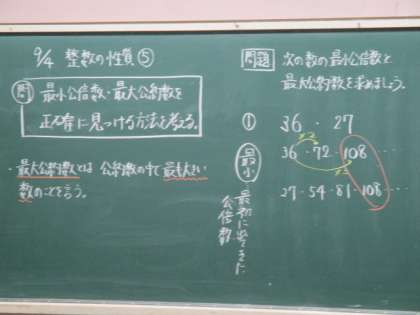 9/4 整数の性質⑤
問 最小公倍数・最大公約数を
正確に見つける方法を考える。
・最大公約数とは 公約数の中で最も大きい
数のことを言う。
問題 次の数の最小公倍数と
最大公約数を求めましょう。
① 36・27
最小 36・72・108・・・・
27・54・81・108・・・
最初に出てきた
公倍数